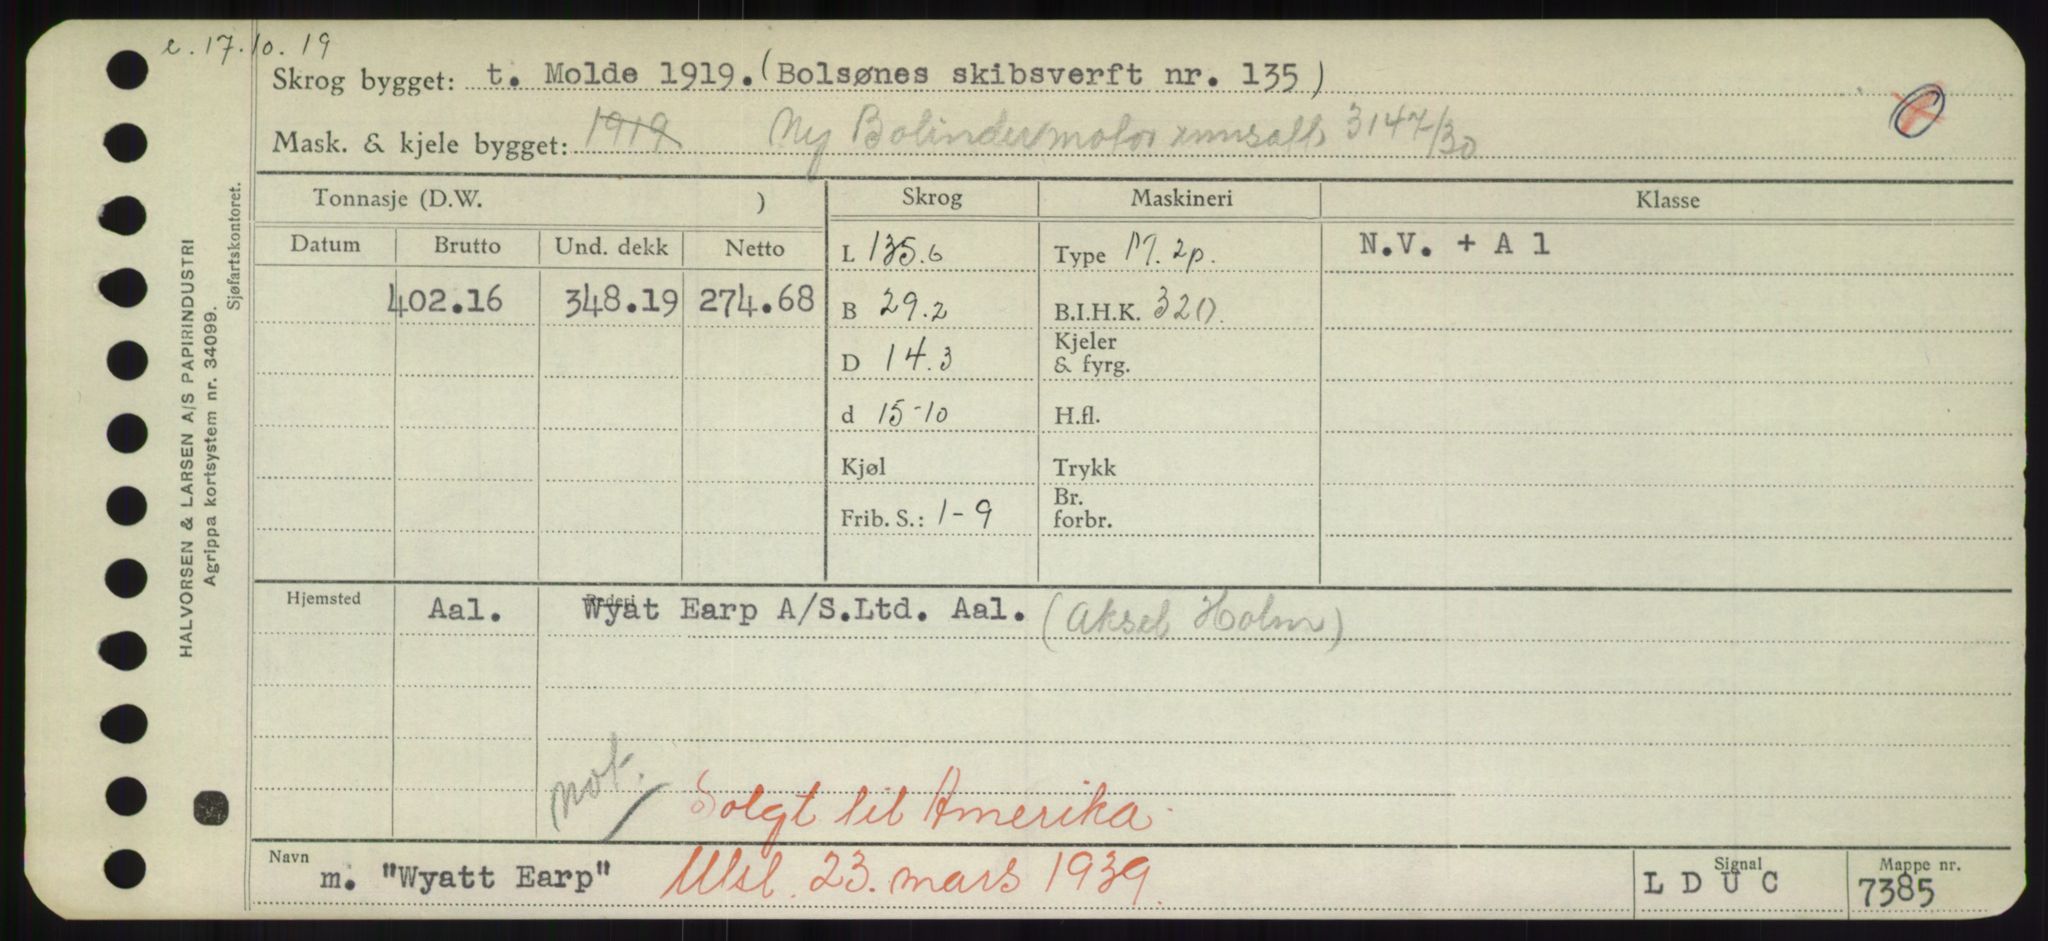 e. 17.10.19
Skrog bygget: t. Molde 1919. (Bolsønes skibsverft nr. 135)
Mask. & kjele bygget: 1919 Ny Bolindermotor innsatt 3147/30
Tonnasje (D.W. ) Skrog Maskineri Klasse
Datum Brutto Und. dekk Netto L 135.6 Type M. 2p. N.V. + A 1
402.16 348.19 274.68 B 29.2 B.I.H.K. 320.
D 14.3 Kjeler & fyrg.
d 15-10 H.fl.
Kjøl Trykk
Frib. S.: 1-9 Br. forbr.
Hjemsted Aal. Rederi Wyat Earp A/S.Ltd. Aal. (Aksel Holm)
not.
Solgt til Amerika.
Navn m. "Wyatt Earp" Utsl. 23. mars 1939. Signal L D U C Mappe nr. 7385
HALVORSEN & LARSEN A/S PAPIRINDUSTRI
Agrippa kortsystem nr. 34099.
Sjøfartskontoret.